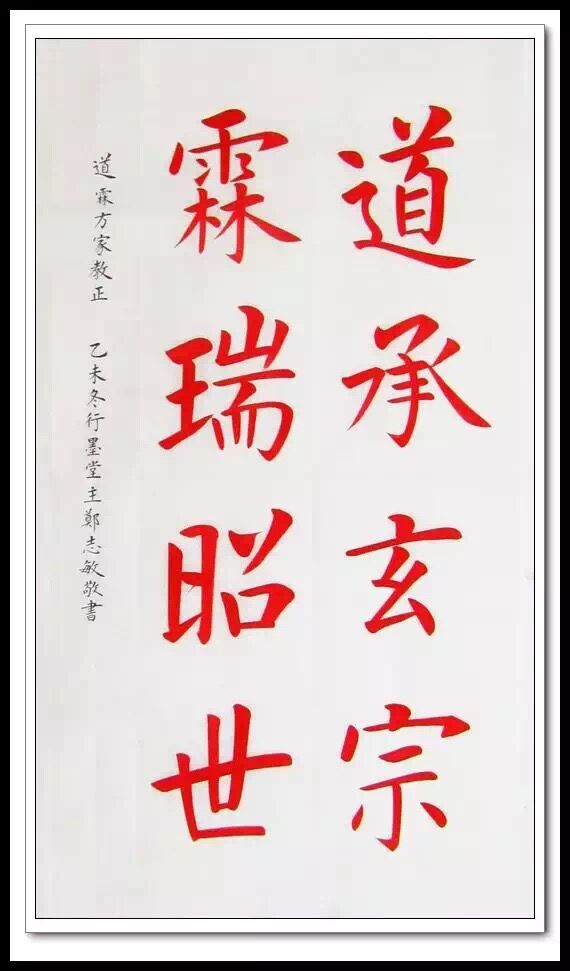 道承玄宗
霖瑞昭世
道霖方家教正 乙未冬行墨堂主鄭志敏敬書